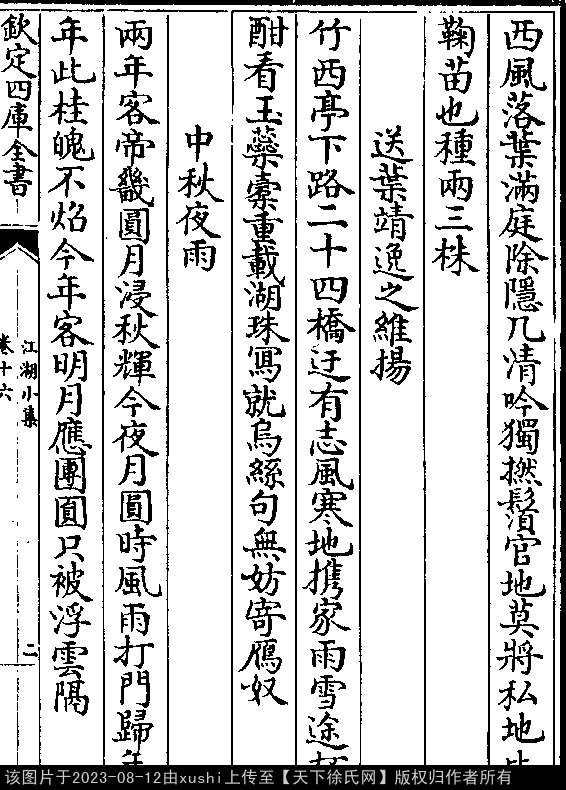 西風落葉滿庭除隱几清吟獨撚鬚官地莫將私地比
鞠苗也種兩三株
送葉靖逸之維揚
竹西亭下路二十四橋迂有志風寒地携家雨雪途
酣看玉蘂橐重載湖珠寫就烏絲句無妨寄鴈奴
中秋夜雨
兩年客帝畿圓月浸秋輝今夜月圓時風雨打門歸
年此桂魄不焰今年客明月應團圓只被浮雲隔
欽定四庫全書
江湖小集
卷十六
二
该图片于2023-08-12由xushi上传至【天下徐氏网】版权归作者所有